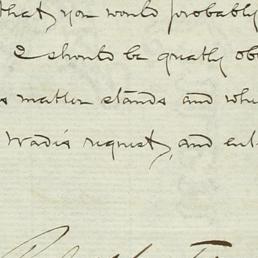 that you would probably
I should be greatly ob
s matter stands and whe
Wadis request, and enl